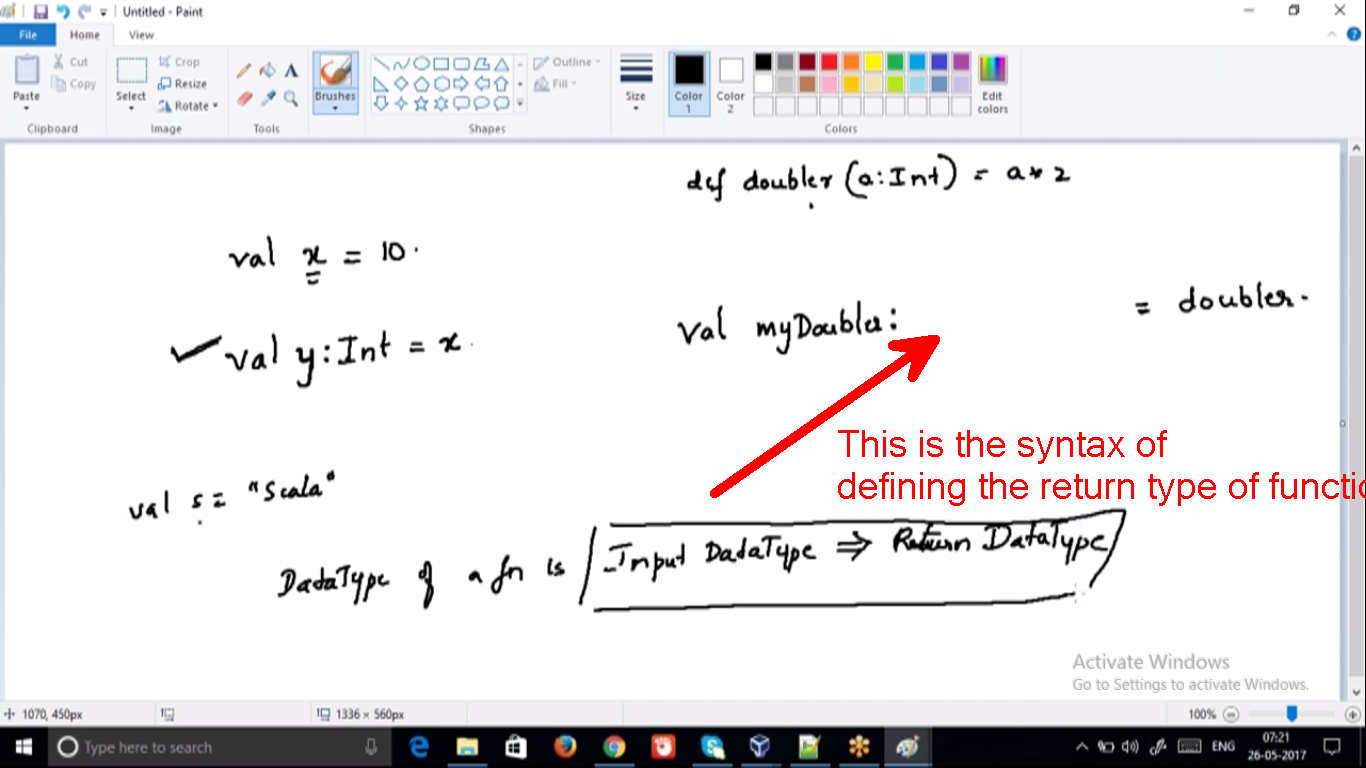 Untitled - Paint
File Home View
Paste
Cut
Copy
Clipboard
Select
Crop
Resize
Rotate
Image
A
Tools
Brushes
Outline
Fill
Shapes
Size
Color 1
Color 2
Edit colors
Colors
def doubler (a:Int) = a* 2
val x = 10.
val y:Int = x
val myDoubler: = doubler.
This is the syntax of
defining the return type of functi
val s = "Scala"
DataType of a fn is Input DataType ⇒ Return DataType
Activate Windows
Go to Settings to activate Windows.
1070, 450px
1336 × 560px
100%
Type here to search
ENG
07:21
26-05-2017